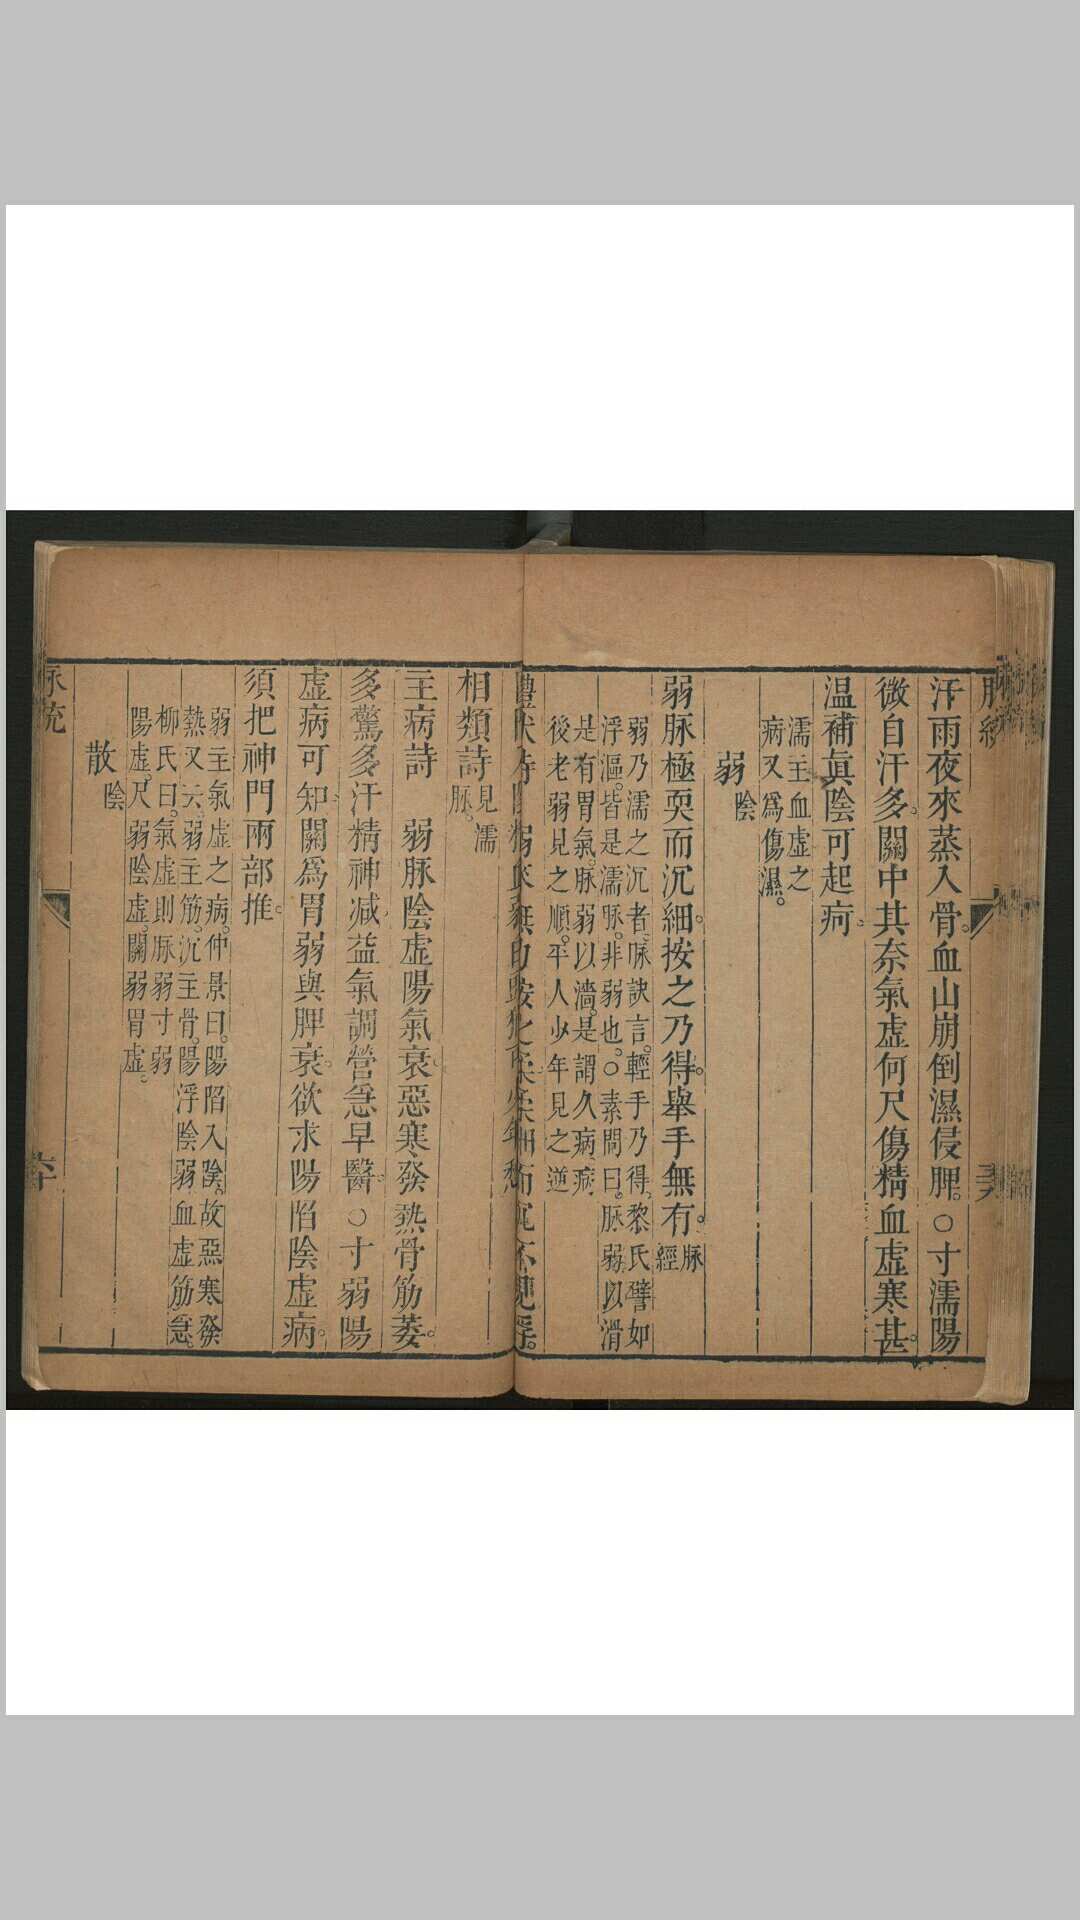 汗雨夜來蒸入骨。血山崩倒濕侵脾。○寸濡陽
微自汗多。關中其奈氣虛何尺傷精血虛寒甚。
温補眞陰可起疴。
濡主血虛之
病又爲傷濕。
弱
陰
弱脉極耎而沉細。按之乃得。舉手無有。
脉
經
弱乃濡之沉者。脉訣言。輕手乃得。黎氏譬如
浮漚。皆是濡脉。非弱也。○素問曰。脉弱以滑
是有胃氣。脉弱以濇。是謂久病。病
後老弱見之順。平人少年見之逆
相類詩
見濡
脉。
主病詩 弱脉陰虛陽氣衰。惡寒發熱骨筋萎。
多驚多汗精神減。益氣調營急早醫。○寸弱陽
虛病可知。關爲胃弱與脾衰。欲求陽陷陰虛病。
須把神門兩部推。
弱主氣虛之病。仲景曰。陽陷入陰。故惡寒發
熱又云。弱主筋。沉主骨。陽浮陰弱血虛筋急。
柳氏曰。氣虛則脉弱寸弱
陽虛。尺弱陰虛。關弱胃虛。
散
陰